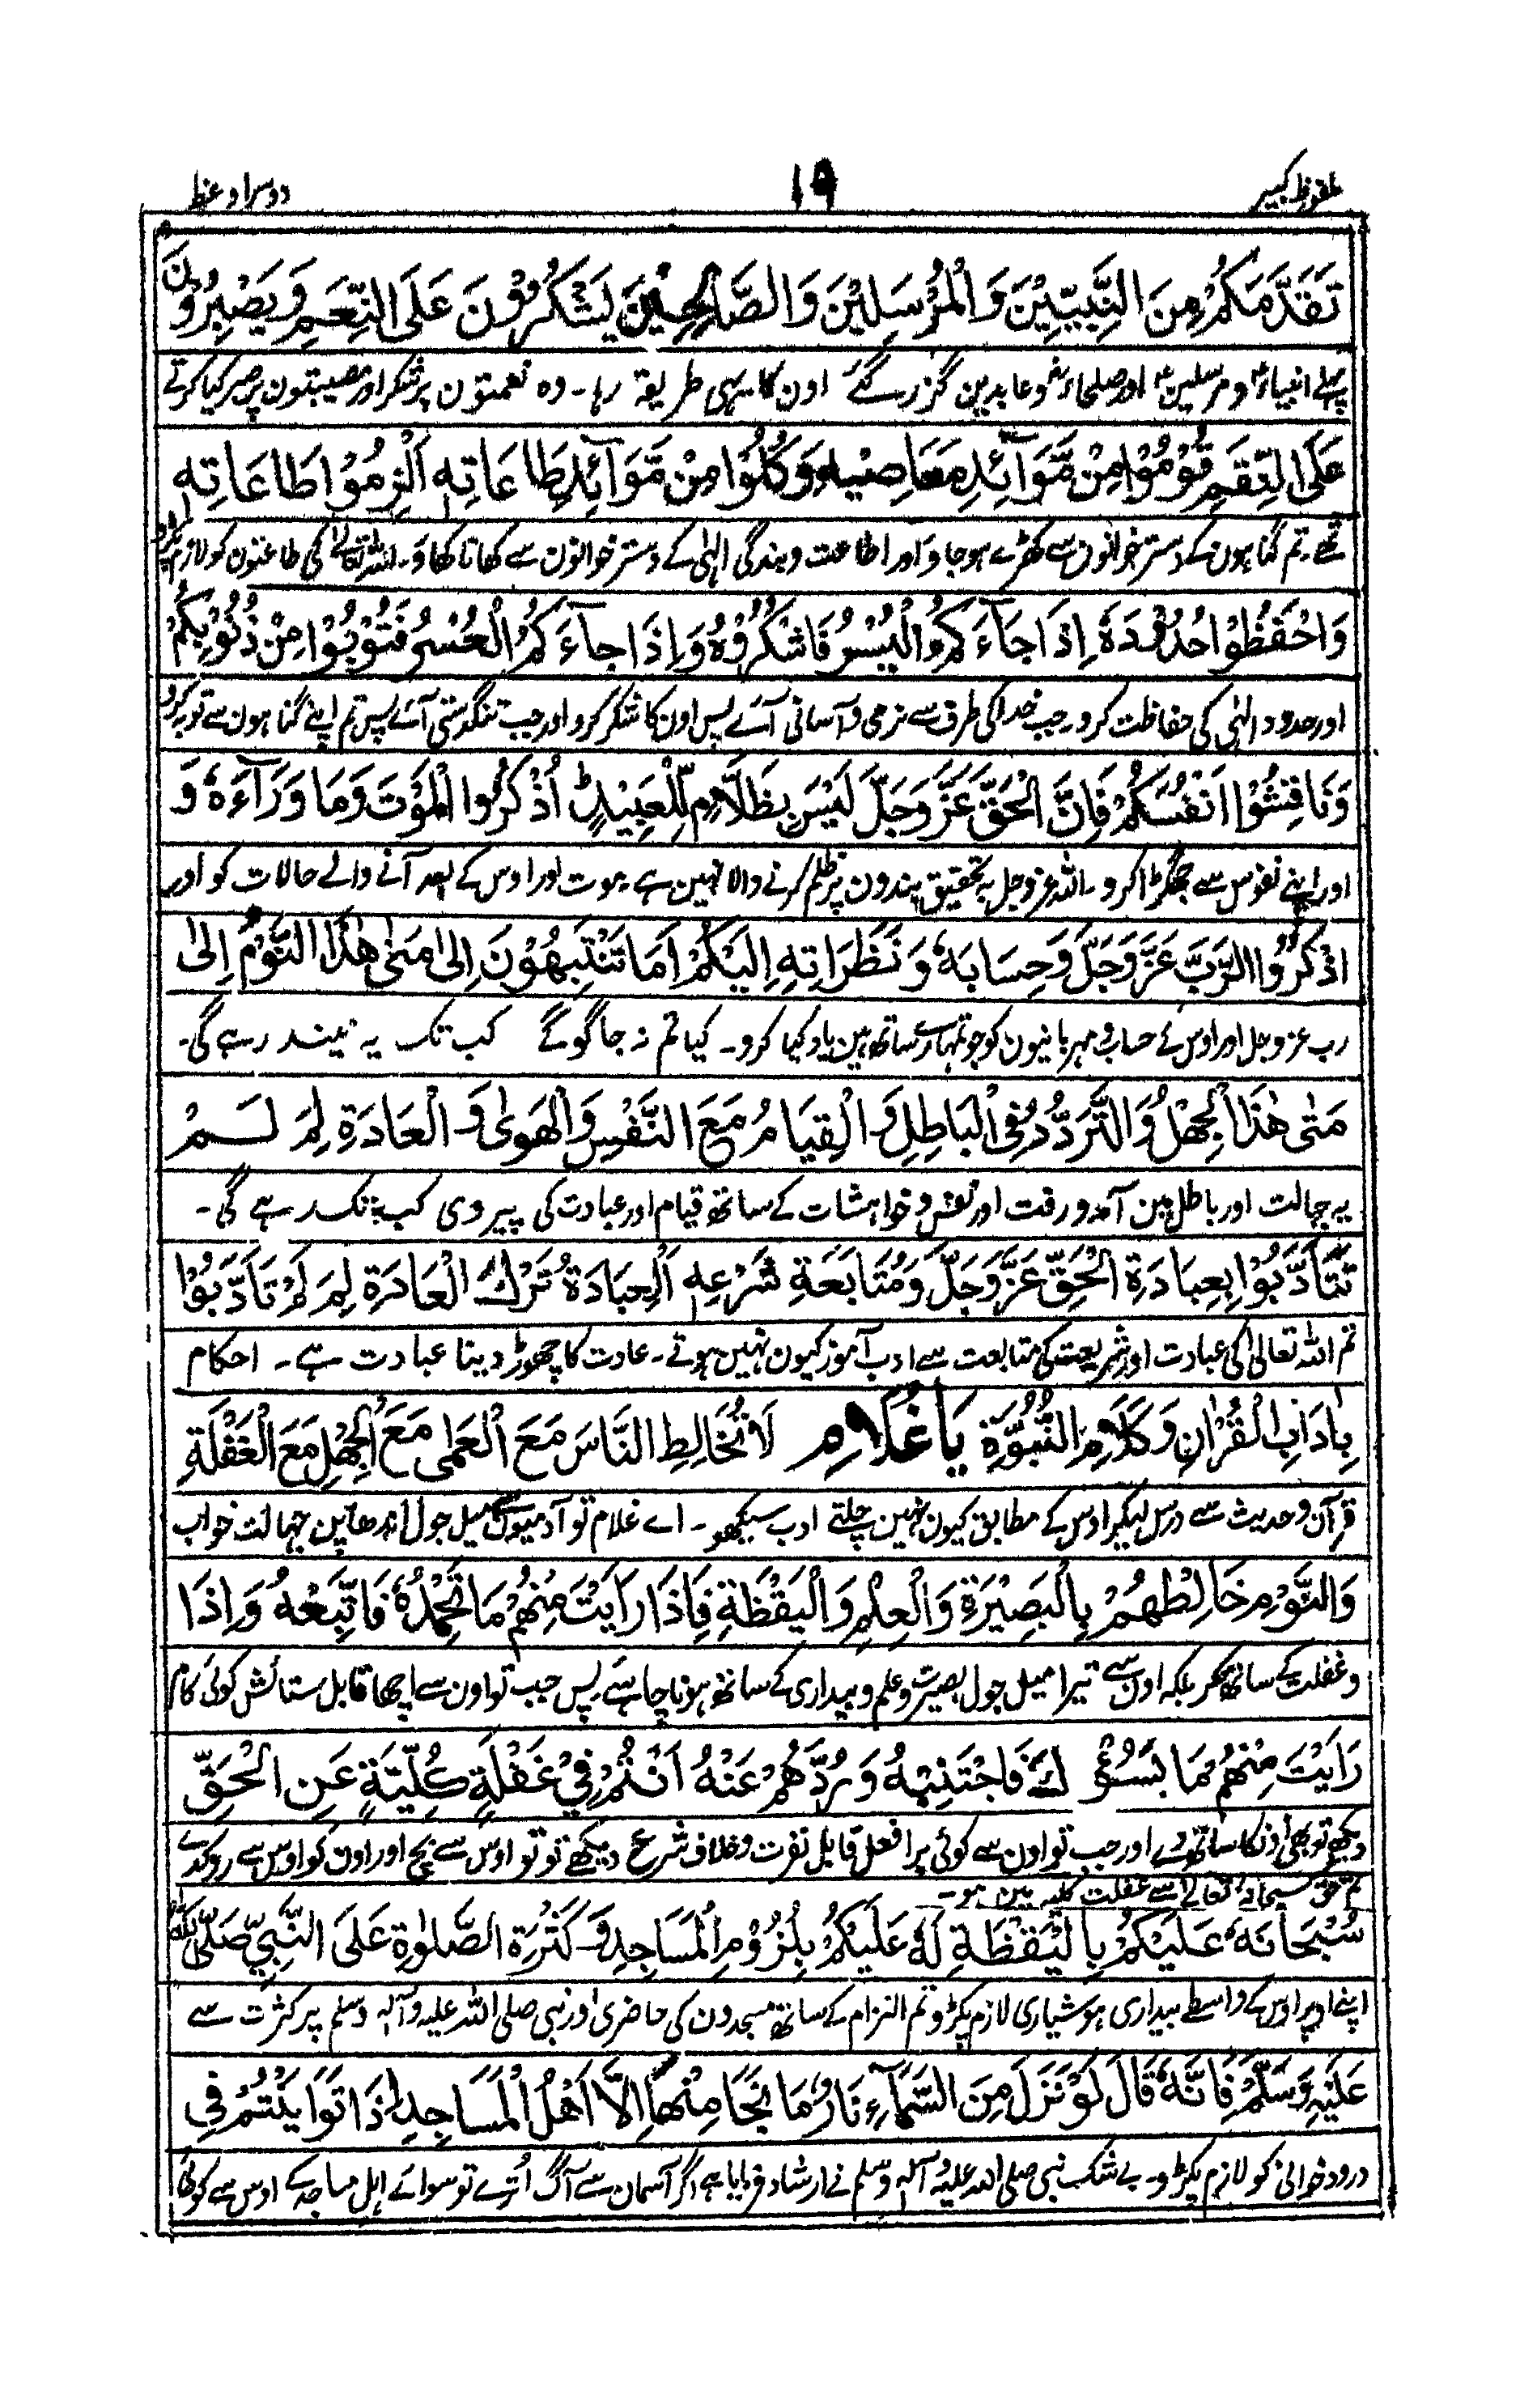 ملفوظ کبیر ۱۹ دوسرا وعظ
تَقَدَّمَكُمْ مِنَ النَّبِيِّيْنَ وَالْمُرْسَلِيْنَ وَالصَّالِحِيْنَ يَشْكُرُوْنَ عَلَى النِّعَمِ وَيَصْبِرُوْنَ
پہلے انبیاء و مرسلین اور صلحاء و عابدین گزر گئے اون کا یہی طریقہ رہا۔ وہ نعمتون پر شکر اور مصیبتون پر صبر کیا کرتے
عَلَى النِّقَمِ قُوْمُوْا مِنْ مَّوَآئِدِ مَعَاصِيْهِ وَكُلُوْا مِنْ مَّوَآئِدِ طَاعَاتِهٖ اَلْزِمُوْا طَاعَاتِهٖ
تھے۔ تم گناہون کے دسترخوانون سے کھڑے ہوجاؤ اور اطاعت و بندگی الٰہی کے دسترخوانون سے کھانا کھاؤ۔ اللہ تعالیٰ کی طاعتون کو لازم پکڑو
وَاحْفَظُوْا حُدُوْدَهٗ اِذَا جَآءَكُمُ الْيُسْرُ فَاشْكُرُوْهُ وَاِذَا جَآءَكُمُ الْعُسْرُ فَتُوْبُوْا مِنْ ذُنُوْبِكُمْ
اور حدود الٰہی کی حفاظت کرو۔ جب خدا کی طرف سے نرمی و آسانی آئے پس اون کا شکر کرو اور جب تنگدستی آئے پس تم اپنے گناہون سے توبہ کرو
وَنَاقِشُوْا اَنْفُسَكُمْ فَاِنَّ الْحَقَّ عَزَّ وَجَلَّ لَيْسَ بِظَلَّامٍ لِّلْعَبِيْدِ اُذْكُرُوا الْمَوْتَ وَمَا وَرَآءَهٗ وَ
اور اپنے نفوس سے جھگڑا کرو۔ اللہ عزوجل بہ تحقیق بندون پر ظلم کرنے والا نہین ہے۔ موت اور اوس کے بعد آنے والے حالات کو اور
اذْكُرُوا الرَّبَّ عَزَّ وَجَلَّ وَحِسَابَهٗ وَنَظَرَاتِهٖ اِلَيْكُمْ اَمَا تَنْتَبِهُوْنَ اِلٰى مَتٰى هٰذَا النَّوْمُ اِلٰى
رب عزوجل اور اوس کے حساب و مہربانیون کو جو تمہارے ساتھ ہین یاد کیا کرو۔ کیا تم نہ جاگو گے کب تک یہ نیند رہے گی۔
مَتٰى هٰذَا الْجَهْلُ وَالتَّرَدُّدُ فِى الْبَاطِلِ وَالْقِيَامُ مَعَ النَّفْسِ وَالْهَوٰى وَالْعَادَةِ لِمَ لَمْ
یہ جہالت اور باطل مین آمد و رفت اور نفس و خواہشات کے ساتھ قیام اور عبادت کی پیروی کب تک رہے گی۔
تَتَأَدَّبُوْا بِعِبَادَةِ الْحَقِّ عَزَّ وَجَلَّ وَمُتَابَعَةِ شَرْعِهٖ اَلْعِبَادَةُ تَرْكُ الْعَادَةِ لِمَ لَمْ تَأَدَّبُوْا
تم اللہ تعالیٰ کی عبادت اور شریعت کی متابعت سے ادب آموز کیون نہین ہوتے۔ عادت کا چھوڑ دینا عبادت ہے۔ احکام
بِاٰدَابِ الْقُرْاٰنِ وَكَلَامِ النُّبُوَّةِ يَا غُلَامُ لَا تُخَالِطِ النَّاسَ مَعَ الْعَمٰى مَعَ الْجَهْلِ مَعَ الْغَفْلَةِ
قرآن و حدیث سے درس لیکر اوس کے مطابق کیون نہین چلتے ادب سیکھو۔ اے غلام تو آدمیون سے میل جول اندھاپن جہالت خواب
وَالنَّوْمِ خَالِطْهُمْ بِالْبَصِيْرَةِ وَالْعِلْمِ وَالْيَقْظَةِ فَاِذَا رَاَيْتَ مِنْهُمْ مَا تَحْمَدُهٗ فَاتَّبِعْهُ وَاِذَا
و غفلت کے ساتھ نکر بلکہ اون سے تیرا میل جول بصیرت و علم و بیداری کے ساتھ ہونا چاہئے پس جب تو اون سے اچھا قابل ستائش کوئی کام
رَاَيْتَ مِنْهُمْ مَا يَسُوْءُكَ فَاجْتَنِبْهُ وَرُدَّهُمْ عَنْهُ اَنْتُمْ فِيْ غَفْلَةٍ كُلِّيَّةٍ عَنِ الْحَقِّ
دیکھے تو بھی اون کا ساتھ دے اور جب تو اون سے کوئی برا فعل قابل نفرت و خلاف شرع دیکھے تو تو اوس سے بچ اور اون کو اوس سے روکدے
تم حق سبحانہ تعالیٰ سے غفلت کلیہ مین ہو۔
سُبْحَانَهٗ عَلَيْكُمْ بِالْيَقْظَةِ لَهٗ عَلَيْكُمْ بِلُزُوْمِ الْمَسَاجِدِ وَكَثْرَةِ الصَّلٰوةِ عَلَى النَّبِيِّ صَلَّى اللّٰهُ
اپنے اوپر اوس کے واسطے بیداری ہوشیاری لازم پکڑو تم التزام کے ساتھ مسجدون کی حاضری اور نبی صلی اللہ علیہ وآلہ وسلم پر کثرت سے
عَلَيْهِ وَسَلَّمَ فَاِنَّهٗ قَالَ لَوْ نَزَلَ مِنَ السَّمَآءِ نَارٌ مَا نَجَا مِنْهَا اِلَّا اَهْلُ الْمَسَاجِدِ اِذَا تَوَانَيْتُمْ فِي
درود خوانی کو لازم پکڑو۔ بے شک نبی صلی اللہ علیہ وآلہ وسلم نے ارشاد فرمایا ہے اگر آسمان سے آگ اُترے تو سوائے اہل مساجد کے اوس سے کوئی